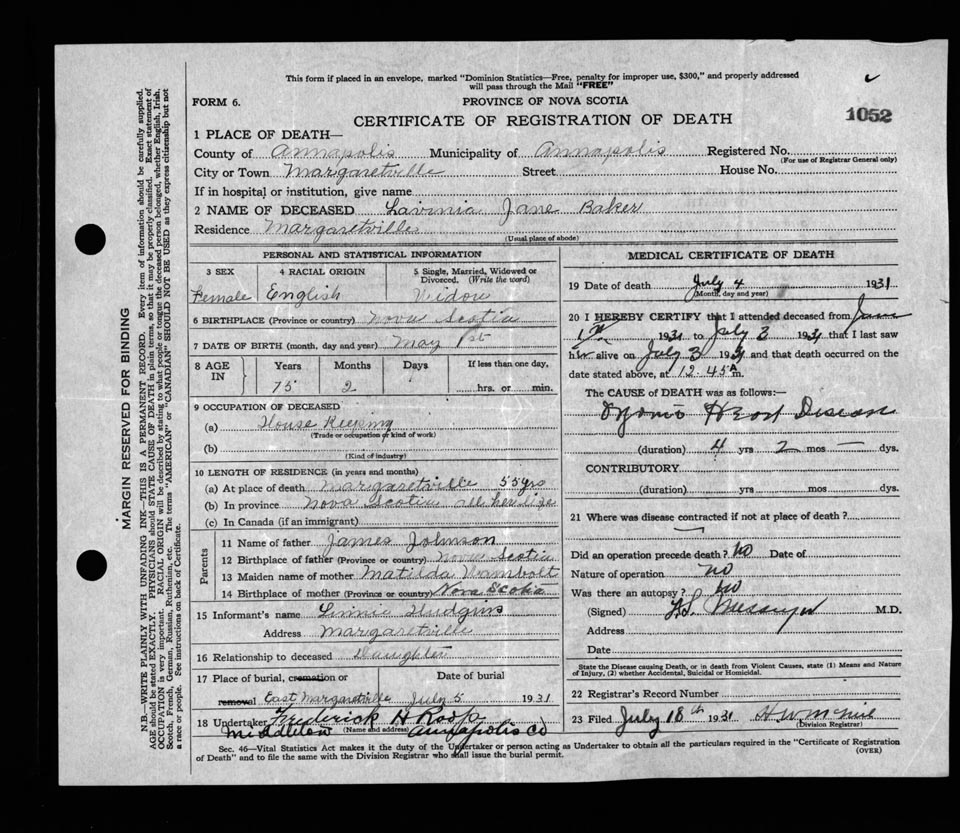 This form if placed in an envelope, marked "Dominion Statistics—Free, penalty for improper use, $300," and properly addressed
will pass through the Mail "FREE"
FORM 6.
PROVINCE OF NOVA SCOTIA
1052
CERTIFICATE OF REGISTRATION OF DEATH
1 PLACE OF DEATH—
County of Annapolis Municipality of Annapolis Registered No.
(For use of Registrar General only)
City or Town Margaretville Street House No.
If in hospital or institution, give name
2 NAME OF DECEASED Lavinia Jane Baker
Residence Margaretville
(Usual place of abode)
PERSONAL AND STATISTICAL INFORMATION
3 SEX 4 RACIAL ORIGIN 5 Single, Married, Widowed or Divorced. (Write the word)
Female English Widow
6 BIRTHPLACE (Province or country) Nova Scotia
7 DATE OF BIRTH (month, day and year) May 1st
8 AGE IN Years Months Days If less than one day,
75 2 hrs. or min.
9 OCCUPATION OF DECEASED
(a) House Keeping
(Trade or occupation or kind of work)
(b)
(Kind of industry)
10 LENGTH OF RESIDENCE (in years and months)
(a) At place of death Margaretville 55 yrs
(b) In province Nova Scotia all her life
(c) In Canada (if an immigrant)
Parents
11 Name of father James Johnson
12 Birthplace of father (Province or country) Nova Scotia
13 Maiden name of mother Matilda Wambolt
14 Birthplace of mother (Province or country) Nova Scotia
15 Informant's name Linnie Hudgins
Address Margaretville
16 Relationship to deceased Daughter
17 Place of burial, cremation or Date of burial
removal East Margaretville July 5 1931
18 Undertaker Frederick H Roop
Middleton (Name and address) Annapolis Co
MEDICAL CERTIFICATE OF DEATH
19 Date of death July 4 1931
(Month, day and year)
20 I HEREBY CERTIFY that I attended deceased from
1931 to July 3 1931 that I last saw
her alive on July 3 1931 and that death occurred on
date stated above, at 12.45 A m.
The CAUSE OF DEATH was as follows:—
Heart Disease
(duration) 4 yrs 2 mos — dys.
CONTRIBUTORY
(duration) yrs mos dys.
21 Where was disease contracted if not at place of death?
Did an operation precede death? No Date of
Nature of operation No
Was there an autopsy? No
(Signed) Messenger M.D.
Address
Date
State the Disease causing Death, or in death from Violent Causes, state (1) Means and Nature
of Injury, (2) whether Accidental, Suicidal or Homicidal.
22 Registrar's Record Number
23 Filed July 18th 1931 H W McNeil
(Division Registrar)
Sec. 46—Vital Statistics Act makes it the duty of the Undertaker or person acting as Undertaker to obtain all the particulars required in the "Certificate of Registration
of Death" and to file the same with the Division Registrar who shall issue the burial permit.
(OVER)
MARGIN RESERVED FOR BINDING
N.B.—WRITE PLAINLY WITH UNFADING INK—THIS IS A PERMANENT RECORD. Every item of information should be carefully supplied.
AGE should be stated EXACTLY. PHYSICIANS should STATE CAUSE OF DEATH in plain terms, so that it may be properly classified. Exact statement of
OCCUPATION is very important. RACIAL ORIGIN will be described by stating to what people or tongue the deceased person belonged, whether English, Irish,
Scotch, French, German, Russian, Ruthenian, etc. The terms "AMERICAN" or "CANADIAN" SHOULD NOT BE USED as they express citizenship but not
a race or people. See instructions on back of Certificate.